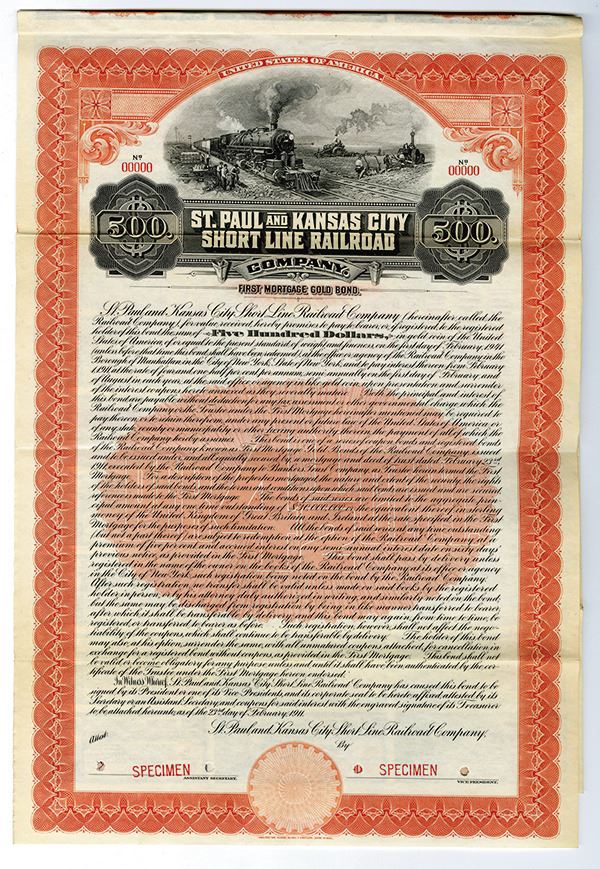 UNITED STATES OF AMERICA.
Nº
00000
Nº
00000
500.
ST. PAUL AND KANSAS CITY
SHORT LINE RAILROAD
COMPANY.
500.
FIRST MORTGAGE GOLD BOND.
St. Paul and Kansas City Short Line Railroad Company (hereinafter called the
Railroad Company), for value received hereby promises to pay to bearer, or if registered to the registered
holder of this bond, the sum of Five Hundred Dollars, in gold coin of the United
States of America, of or equal to the present standard of weight and fineness, on the first day of February, 1941
(unless before that time this bond shall have been redeemed), at the office or agency of the Railroad Company in the
Borough of Manhattan, in the City of New York, State of New York, and to pay interest thereon from February
1, 1911, at the rate of four and one half per cent. per annum, semi-annually, on the first day of February and
of August in each year, at the said office or agency in like gold coin, upon presentation and surrender
of the interest coupons, hereto annexed as they severally mature. Both the principal and interest of
this bond are payable without deduction for any tax, assessment or other governmental charge which the
Railroad Company or the Trustee under the First Mortgage hereinafter mentioned may be required to
pay thereon, or to retain therefrom, under any present or future law of the United States of America or
of any state, county, municipality, or other taxing authority therein, the payment of all of which the
Railroad Company hereby assumes. This bond is one of a series of coupon bonds and registered bonds
of the Railroad Company, known as First Mortgage Gold Bonds of the Railroad Company, issued
and to be issued under, and all equally secured by, a mortgage and deed of trust dated February 23rd
1911, executed by the Railroad Company to Bankers Trust Company, as Trustee, herein termed the First
Mortgage. For a description of the properties mortgaged, the nature and extent of the security, the rights
of the holders of said bonds, and the terms and conditions upon which said bonds are issued and are secured,
reference is made to the First Mortgage. The bonds of said series are limited to the aggregate prin-
cipal amount at any one time outstanding of $30,000,000, or equivalent thereof in sterling
money of the United Kingdom of Great Britain and Ireland at the rate specified in the First
Mortgage for the purposes of such limitation. All the bonds of said series at any time outstanding
(but not a part thereof) are subject to redemption at the option of the Railroad Company at a
premium of five per cent. and accrued interest on any semi-annual interest date on sixty days'
previous notice, as provided in the First Mortgage. This bond shall pass by delivery unless
registered in the name of the owner on the books of the Railroad Company at its office or agency
in the City of New York, such registration being noted on the bond by the Railroad Company.
After such registration, no transfer shall be valid unless made on said books by the registered
holder in person or by his attorney duly authorized in writing, and similarly noted on the bond;
but the same may be discharged from registration by being in like manner transferred to bearer,
after which it shall be transferable by delivery; and this bond may again from time to time, be
registered, or transferred to bearer as before. Such registration, however, shall not affect the nego-
tiability of the coupons, which shall continue to be transferable by delivery. The holder of this bond
may also, at his option, surrender the same, with all unmatured coupons attached, for cancellation in
exchange for a registered bond without coupons, as provided in the First Mortgage. This bond shall not
be valid or become obligatory for any purpose unless and until it shall have been authenticated by the cer-
tificate of the Trustee under the First Mortgage hereon endorsed.
In Witness Whereof, St. Paul and Kansas City Short Line Railroad Company has caused this bond to be
signed by its President or one of its Vice Presidents, and its corporate seal to be hereto affixed, attested by its
Secretary or an Assistant Secretary, and coupons for said interest with the engraved signature of its Treasurer
to be attached hereunto, as of the 23rd day of February, 1911.
St. Paul and Kansas City Short Line Railroad Company,
By
Attest:
SPECIMEN
ASSISTANT SECRETARY.
SPECIMEN
VICE PRESIDENT.